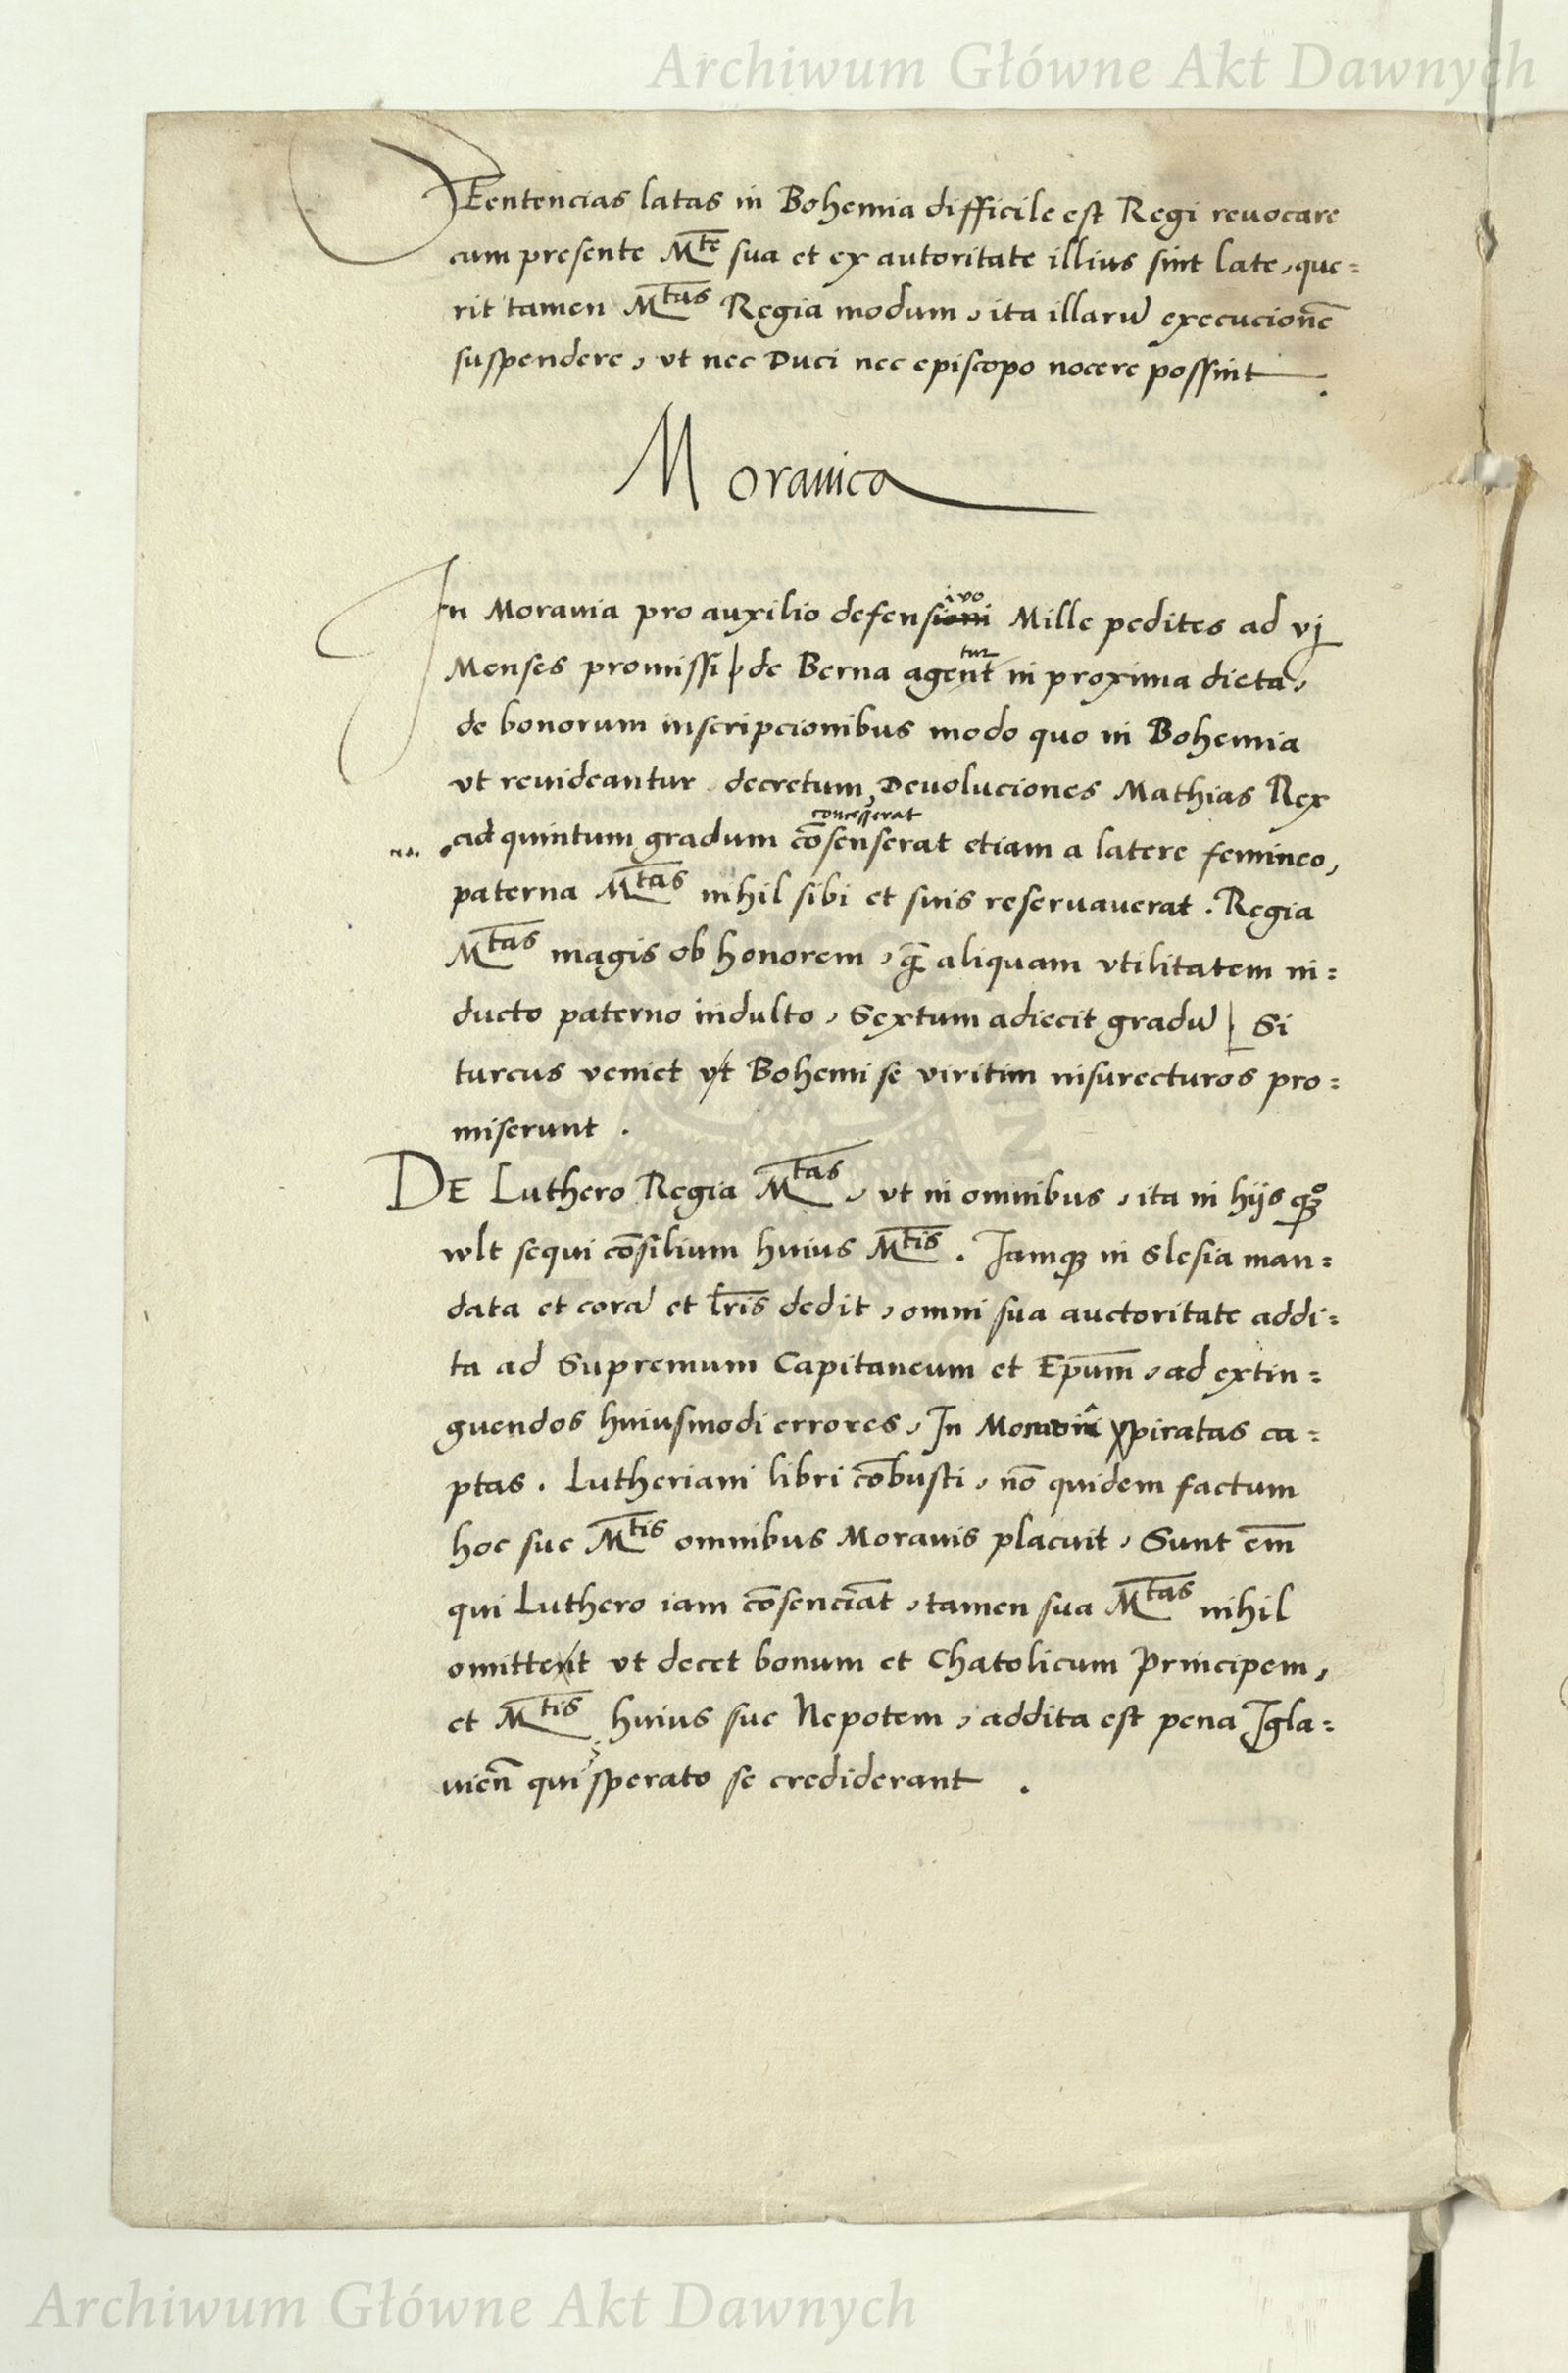 Archiwum Główne Akt Dawnych
Sentencias latas in Bohemia difficile est Regi reuocare
cum presente M^te sua et ex autoritate illius sint late, que=
rit tamen M^tas Regia modum, ita illarũ execucionẽ
suspendere, vt nec Duci nec episcopo nocere possint.
Morauica
In Morauia pro auxilio defensiuo Mille pedites ad vj
Menses promissi | de Berna agentur in proxima dieta,
de bonorum inscripcionibus modo quo in Bohemia
vt reuideantur decretum, Deuoluciones Mathias Rex
concesserat
ad quintum gradum cõsenserat etiam a latere femineo,
paterna M^tas nihil sibi et suis reseruauerat. Regia
M^tas magis ob honorem, q̃ aliquam vtilitatem in=
ducto paterno indulto, Sextum adiecit gradũ | Si
turcus veniet vt Bohemi se viritim insurecturos pro=
miserunt.
DE Luthero Regia M^tas, vt in omnibus, ita in hijs qȝ^o
wlt sequi cõsilium huius M^tis. Iamqȝ in Slesia man=
data et corã et lr̃is dedit, omni sua auctoritate addi=
ta ad Supremum Capitaneum et Ep̃um, ad extin=
guendos huiusmodi errores, In Morauia piratas ca=
ptas. Lutheriani libri cõbusti, nõ quidem factum
hoc sue M^tis omnibus Morauis placuit, Sunt em̃
qui Luthero iam cõsenciãt, tamen sua M^tas nihil
omittet vt decet bonum et Chatolicum Principem,
et M^tis huius sue Nepotem, addita est pena Igla=
uieñ qui sperato se crediderant.
Archiwum Główne Akt Dawnych